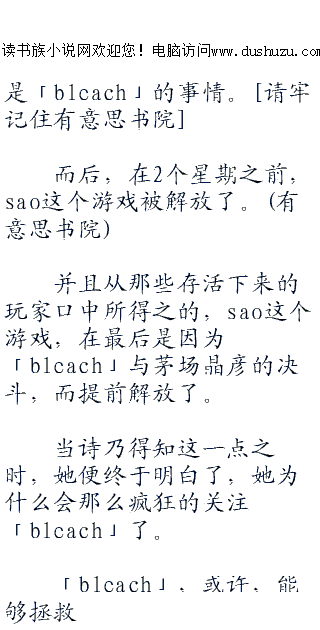 读书族小说网欢迎您！电脑访问www.dushuzu.com
是「blcach」的事情。[请牢
记住有意思书院]
而后，在2个星期之前，
sao这个游戏被解放了。(有
意思书院)
并且从那些存活下来的
玩家口中所得之的，sao这个
游戏，在最后是因为
「blcach」与茅场晶彦的决
斗，而提前解放了。
当诗乃得知这一点之
时，她便终于明白了，她为
什么会那么疯狂的关注
「blcach」了。
「blcach」，或许，能
够拯救